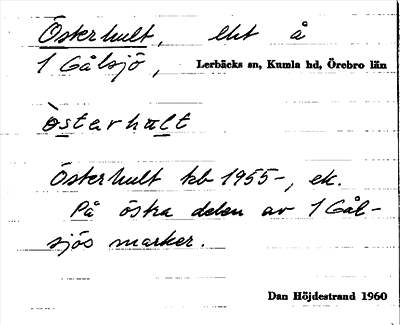 Österhult, lht å
1 Gålsjö, Lerbäcks sn, Kumla hd, Örebro län
òstarhalt
Österhult kb 1955-, ek.
På östra delen av 1 Gål-
sjös marker.
Dan Höjdestrand 1960